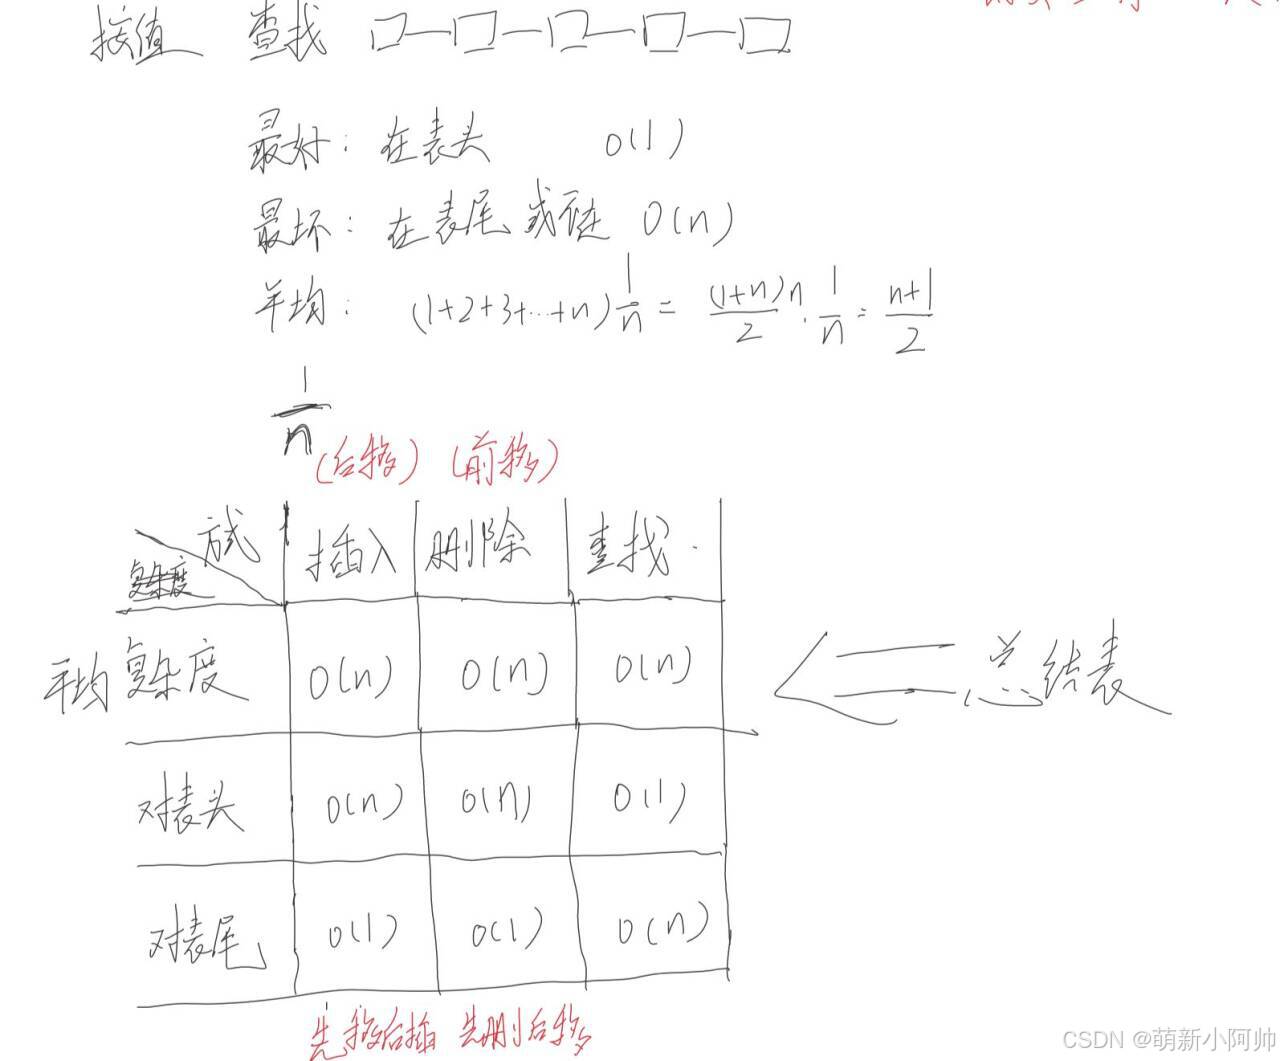 按值 查找
最好: 在表头 O(1)
最坏: 在表尾或 O(n)
平均: (1+2+3+…+n)1/n = (1+n)n/2 · 1/n = n+1/2
1/n
(后移) (前移)
方式 插入 删除 查找
复杂度
平均复杂度 O(n) O(n) O(n)
总结表
对表头 O(n) O(n) O(1)
对表尾 O(1) O(1) O(n)
先移后插 先删后移
CSDN @萌新小阿帅